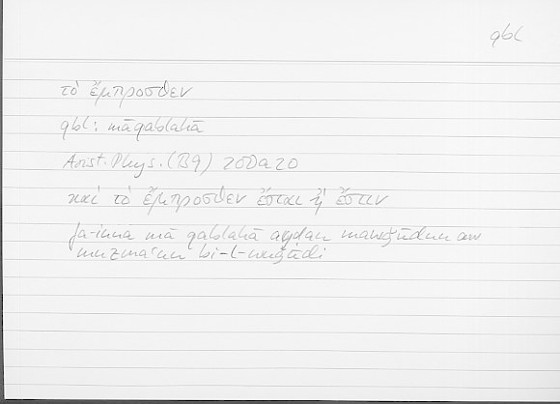 qbl
τὸ ἔμπροσθεν
qbl: mā qablahā
Arist. Phys. (B9) 200a20
καὶ τὸ ἔμπροσθεν ἔσται ἢ ἔστιν
fa-inna mā qablahā ayḍan mawǧūdun aw
bi-l-wuǧūdi